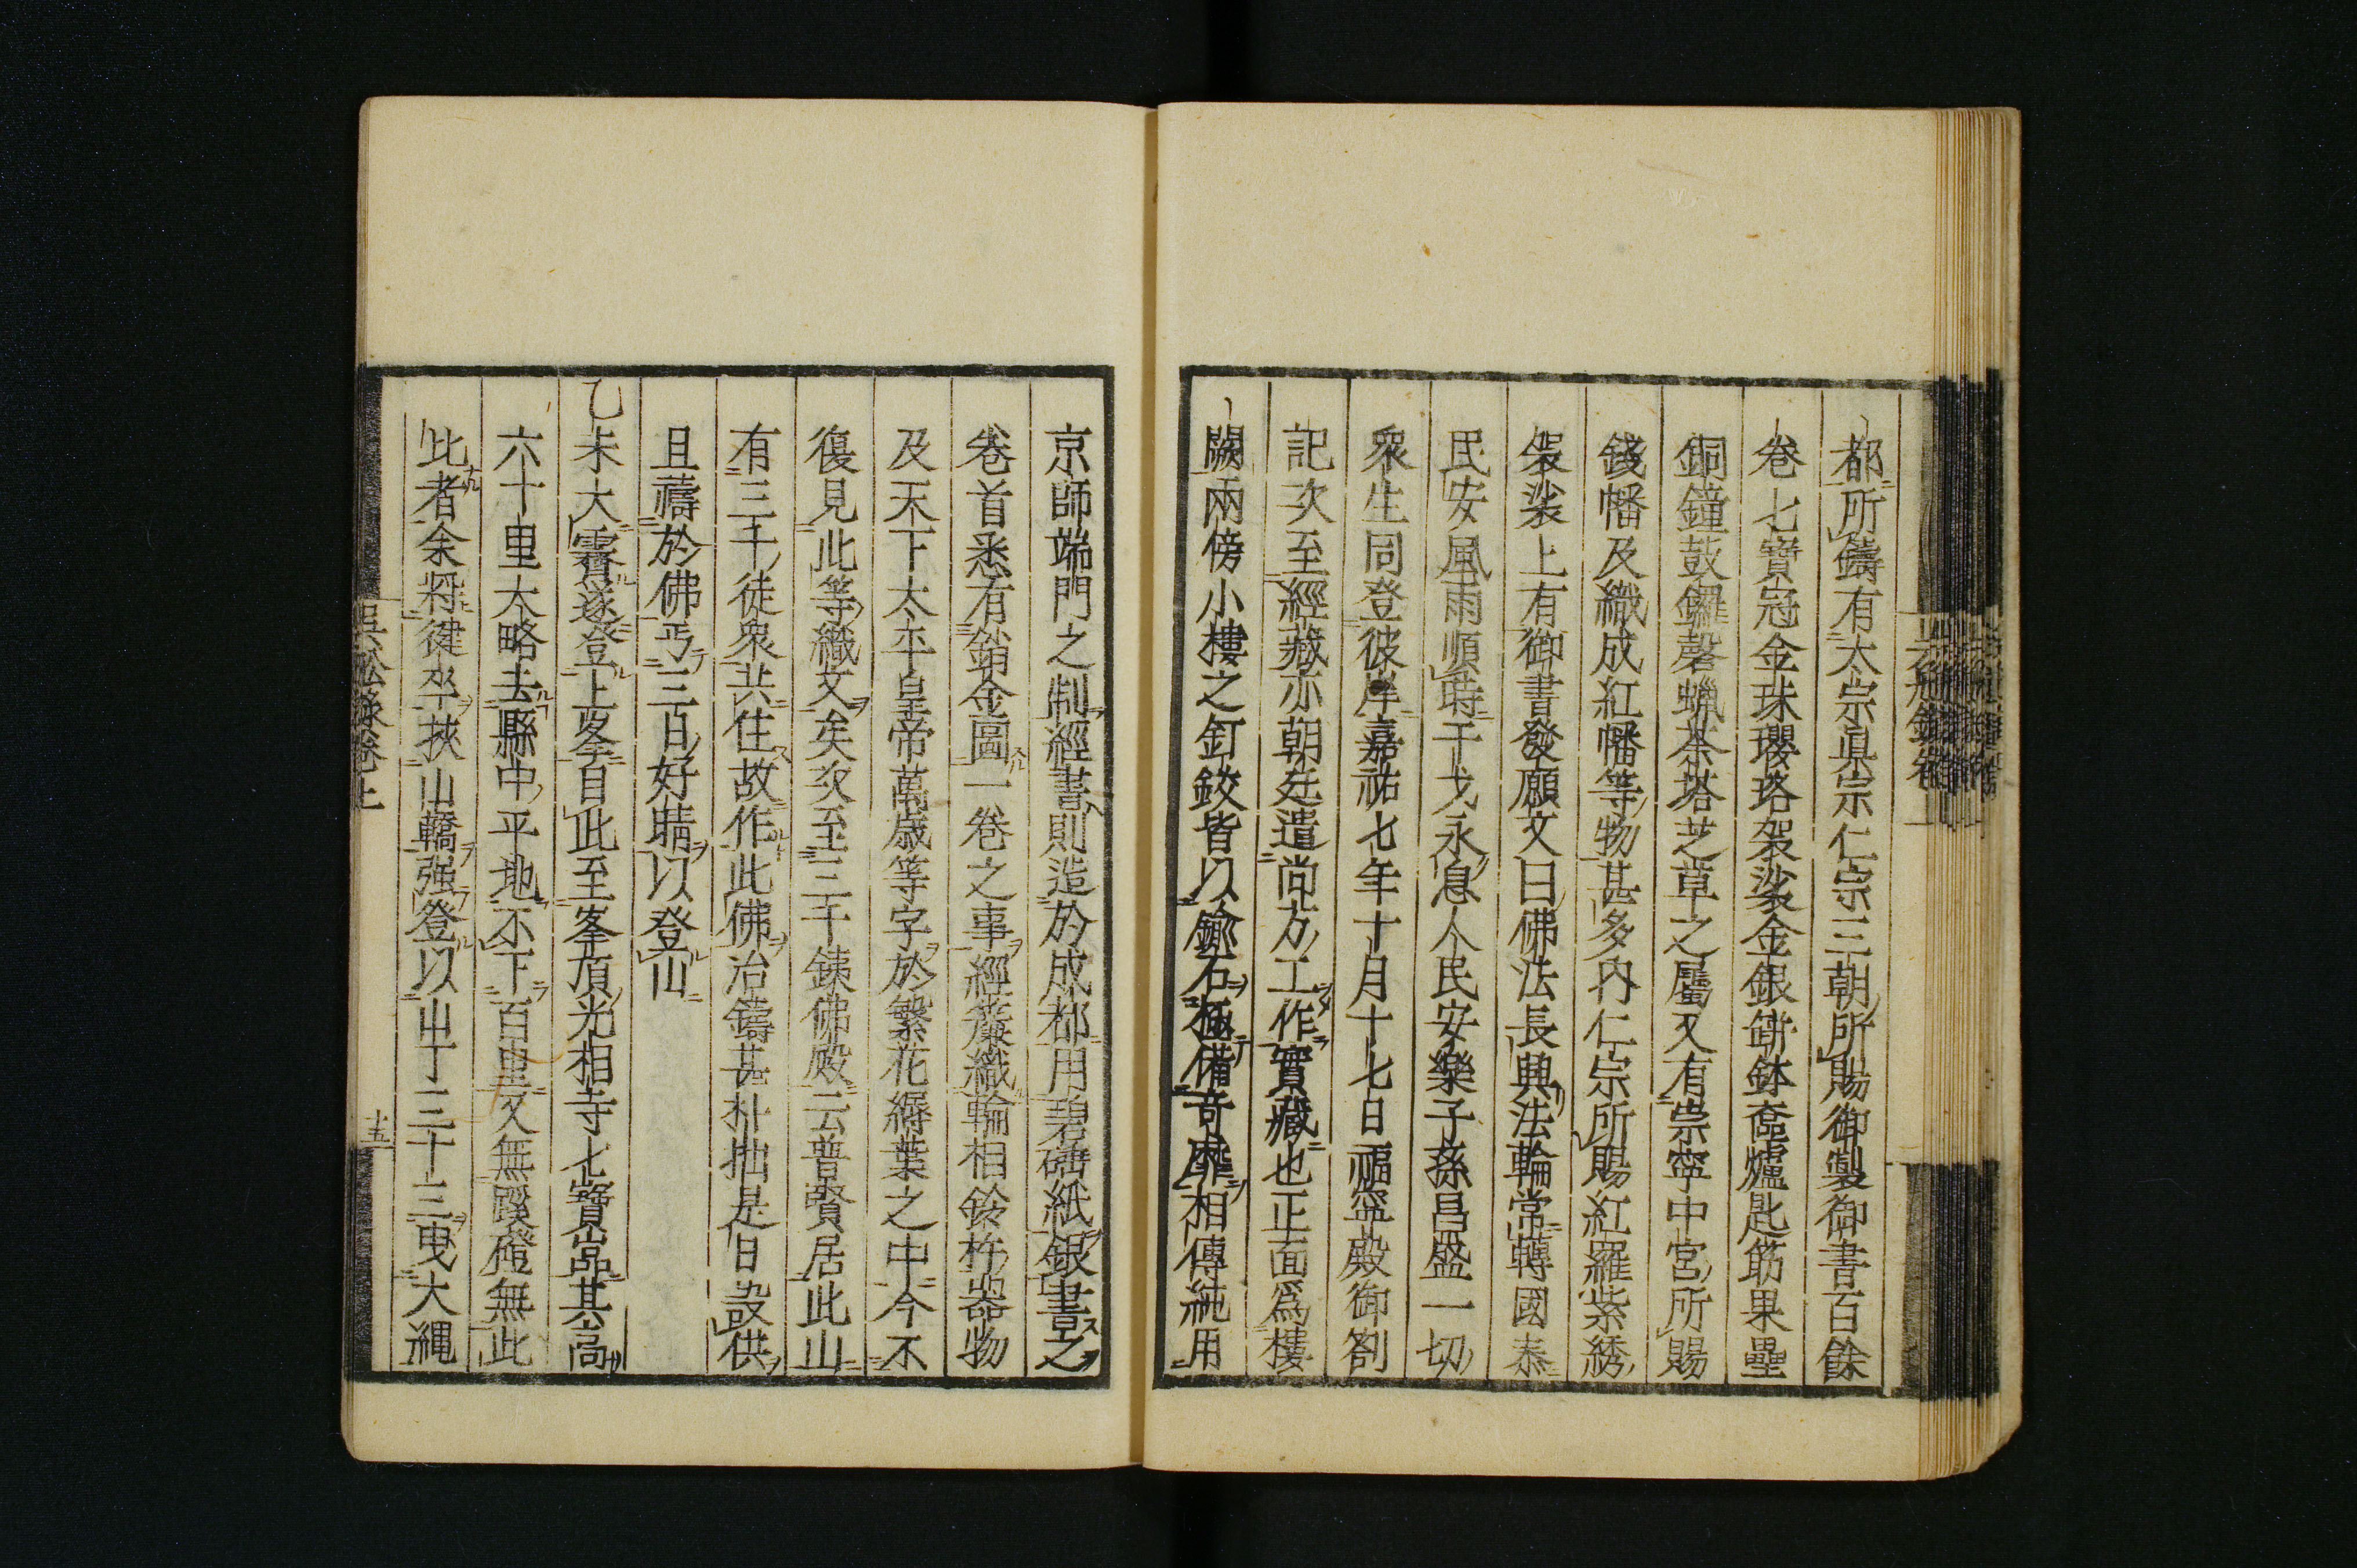 都所鑄有太宗眞宗仁宗三朝所賜御製御書百餘
卷七寶冠金珠瓔珞袈裟金銀缾鉢奩爐匙筯果壘
銅鐘鼓鑼磬蠟茶塔芝草之屬又有崇寧中宮所賜
錢幡及織成紅幡等物甚多内仁宗所賜紅羅紫綉
袈裟上有御書發願文曰佛法長興法輪常轉國泰
民安風雨順時干戈永息人民安樂子孫昌盛一切
衆生同登彼岸嘉祐七年十月十七日福寧殿御劄
記次至經藏亦朝廷遣尚方工作寶藏也正面爲樓
闕兩傍小樓之釘鉸皆以鍮石極備奇靡相傳純用
京師端門之制經書則造於成都用碧硾紙銀書之
卷首悉有銷金圖一卷之事經簾織輪相鈴杵器物
及天下太平皇帝萬歲等字於繁花縟葉之中今不
復見此等織文矣次至三千鐵佛殿云普賢居此山
有三千徒衆共住故作此佛冶鑄甚朴拙是日設供
且禱於佛丐三日好晴以登山
乙未大霽遂登上峯自此至峯頂光相寺七寶嵓其高
六十里大略去縣中平地不下百里又無蹊磴無此
比者余將健卒挾山轎强登以山丁三十三曳大繩
吳船録卷上
十五